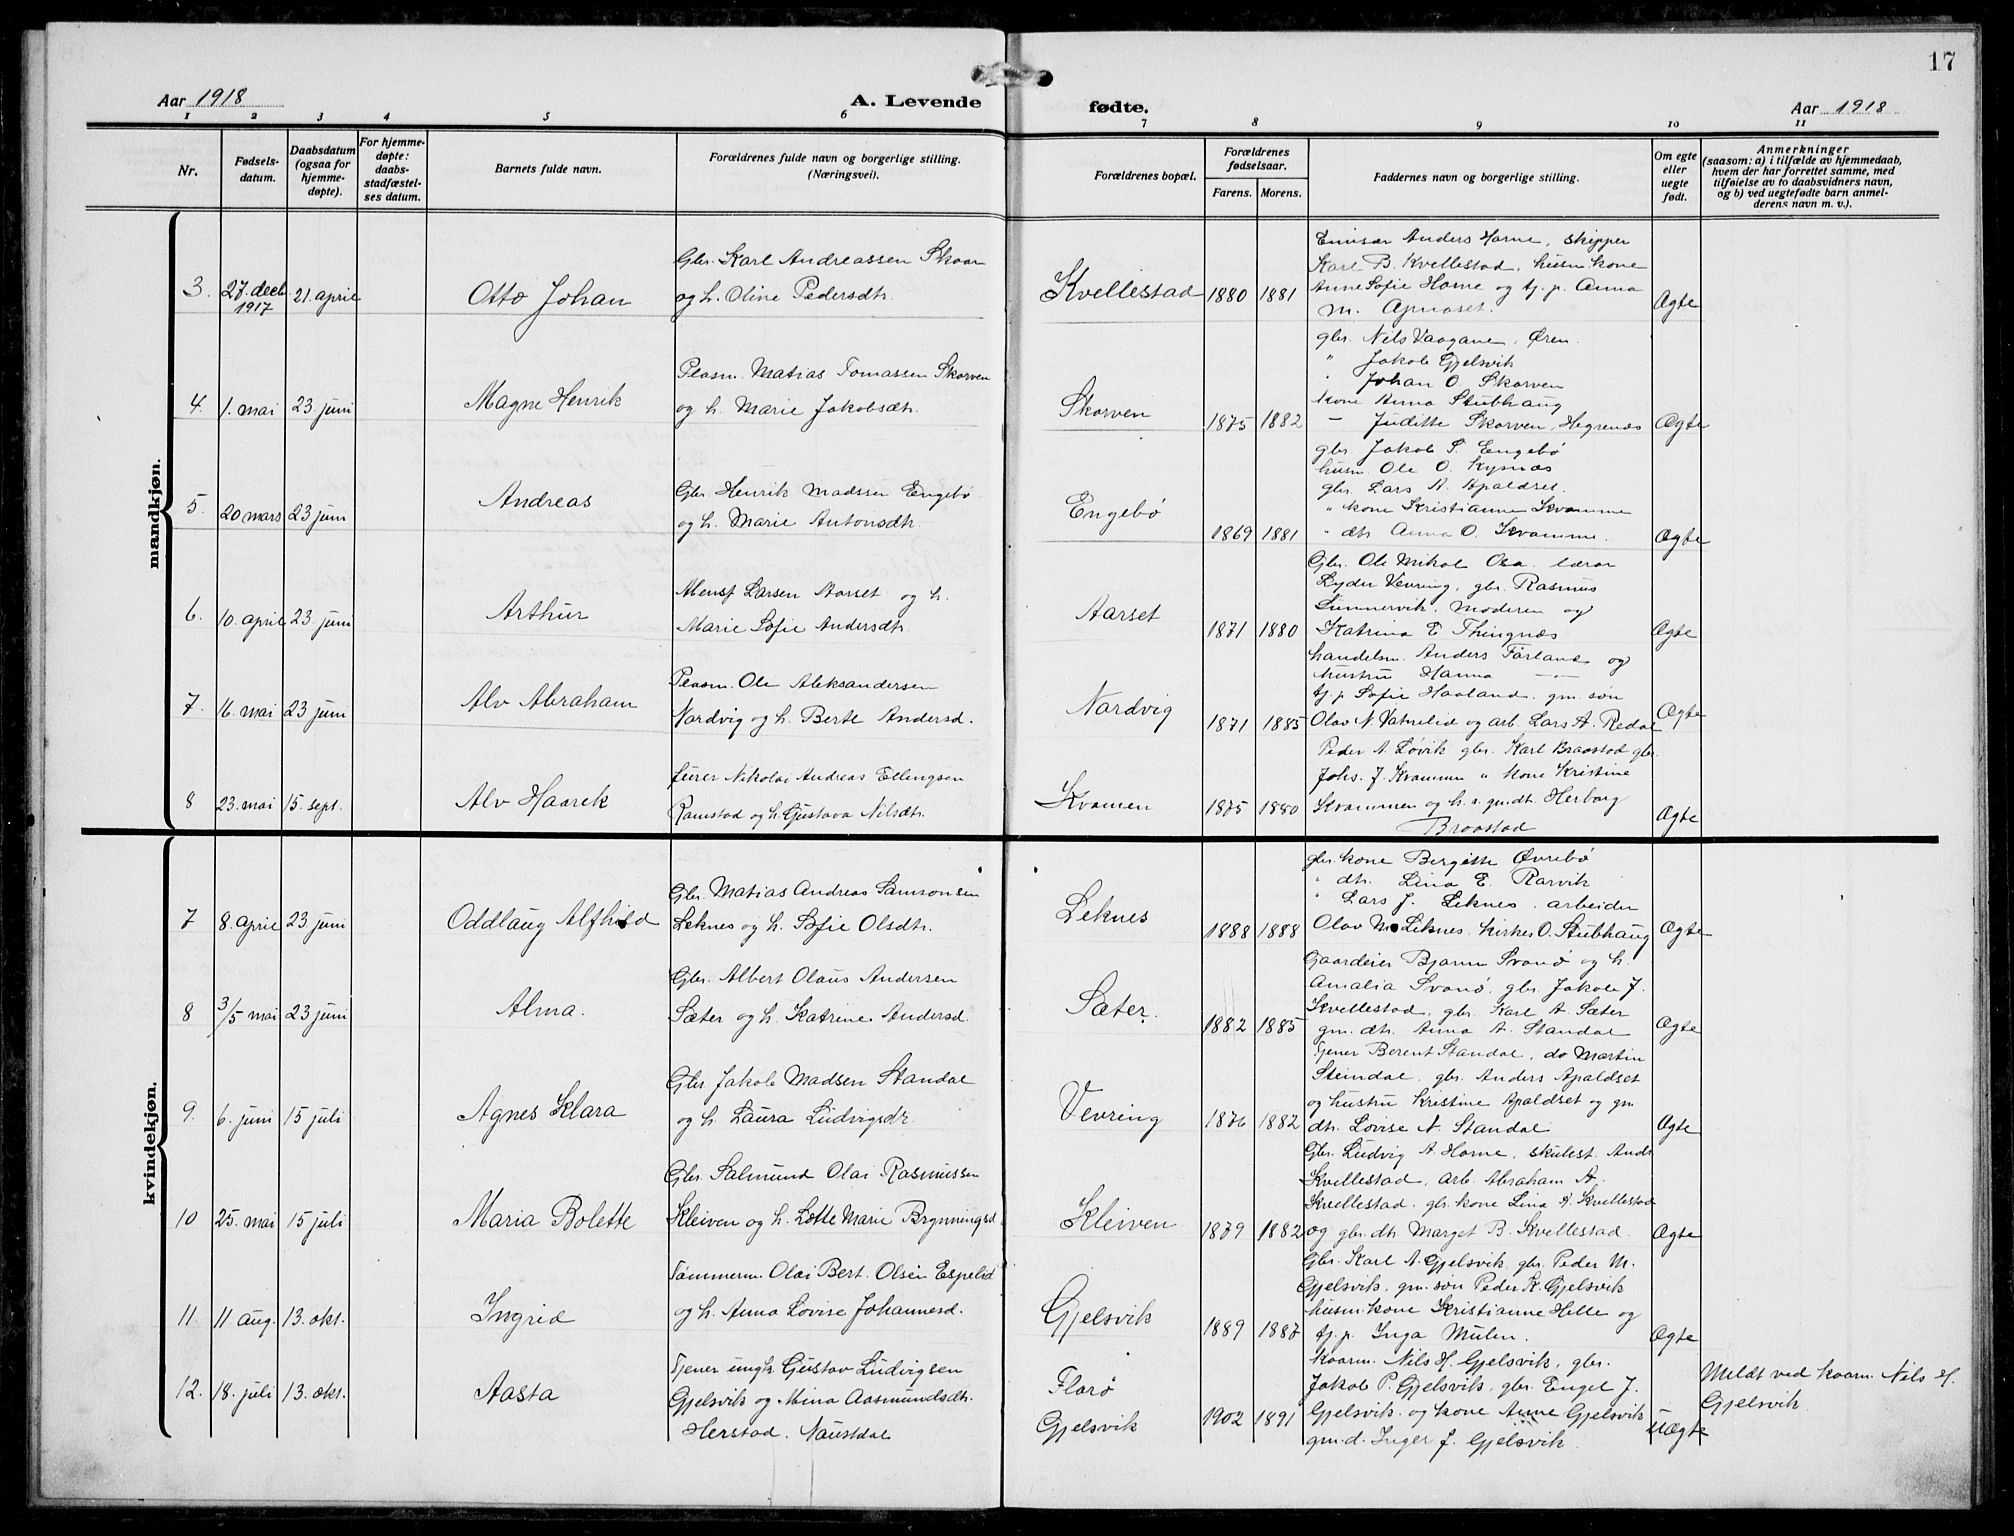 17
Aar 1918
A. Levende
fødte.
Aar 1918
1 2 3 4 5 6 7 8 9 10 11
Nr.
Fødsels-
datum.
Daabsdatum
(ogsaa for
hjemme-
døpte).
For hjemme-
døpte:
daabs-
stadfæstel-
ses datum.
Barnets fulde navn.
Forældrenes fulde navn og borgerlige stilling.
(Næringsvei).
Forældrenes bopæl.
Forældrenes
fødselsaar.
Farens. Morens.
Faddernes navn og borgerlige stilling.
Om egte
eller
uegte
født.
Anmerkninger
(saasom: a) i tilfælde av hjemmedaab,
hvem der har forrettet samme, med
tilføielse av to daabsvidners navn,
og b) ved uegtefødte barn anmel-
derens navn m. v.).
mandkjøn.
3. 27. decb. 1917 21. april Otto Johan
Gbr. Karl Andreassen Skaar
og h. Oline Pedersdtr.
Kvellestad 1880 1881
Emisær Anders Horne, skipper
Karl B. Kvellestad, husm kone
Anne Sofie Horne og tj. p. Anna
M. Apnaset.
Ægte
4. 1. mai 23. juni Magne Henrik
Plasm. Matias Tomassen Skorven
og h. Marie Jakobsdtr.
Skorven 1875 1882
gbr. Nils Vaagane, Øren.
" Jakob Gjelsvik
" Johan O. Skorven
Kone Anna Stubhaug
— Juditte Skorven, Hegrenes
Ægte
5. 20 mars 23 juni Andreas
Gbr. Henrik Madssen Engebø
og h. Marie Antonsdtr.
Engebø 1869 1881
gbr. Jakob P. Engebø
husm. Ole O. Kysnæs
gbr. Lars A. Apaldset.
" kone Kristianne Kvamme
" dtr. Anna O. Kvamme.
Ægte
6. 10. april 23 juni Arthur
Mensf Larsen Aarset og h.
Marie Sofie Andersdtr.
Aarset 1871 1880
Gbr. Ole Mikal Osa. lærar
Lyder Vevring, gbr. Rasmus
Sunnervik. Moderen og
Katrina E Thingnæs
Ægte
7. 16. mai 23 juni Alv Abraham
Plasm. Ole Aleksandersen
Nordvig og h. Berte Andersd.
Nordvig 1871 1885
handelsm. Anders Førland og
hustru Hanna — —
tj. p Sofie Haaland. gm. søn
Olav N. Vatnelid og arb. Lars A. Redal
Ægte
8 23. mai 15. sept. Alv Haarek
furer Nikolai Andreas Ellengsen
Ramstad og h. Gustava Nilsdtr.
Kvamen 1875 1880
Peder A. Løvik gbr. Karl Braastad gbr.
Johs. J. Kvammen " kone Kristine
Kvammen og h. s. gm. dtr. Herborg
Braastad
Ægte
kvindekjøn.
7 8. april 23. juni Oddlaug Alfhild
Gbr. Matias Andreas Samsonsen
Leknes og h. Sofie Olsdtr.
Leknes 1888 1888
gbr. kone Bergitte Øvrebø
" dtr. Lina E. Rarvik
" Lars J. Leknes. arbeider
Olav M. Leknes. kirkes O. Stubhaug
Ægte
8 3/5 mai 23 juni Alma.
Gbr. Albert Olaus Andersen
Sæter og h. Katrine Andersd.
Sæter. 1882 1885
Gaardeier Bjarne Svanø og h.
Amalia Svanø. gbr. Jakob J.
Kvellestad, gbr. Karl A. Sæter
gm. dtr. Anna A. Standal
Ægte
9. 6. juni 15 juli Agnes Klara
Gbr Jakob Madsen Standal
og h. Laura Ludvigsdtr.
Vevring 1876 1882
Tjener Berent Standal, do Martin
Steindal, gbr. Anders Apaldset
og hustru Kristine Apaldset og gm
dtr. Lovise N. Standal
Ægte
10 25. mai 15 juli Maria Bolette
Gbr. Salmund Olai Rasmussen
Kleiven og h. Lotte Marie Brynningsd.
Kleiven 1879 1882
Gbr. Ludvig A Horne, skulest. Andr
Kvellestad, arb. Abraham A.
Kvellestad, gbr kone Lina A Kvellestad
og gbr. dtr Marget B. Kvellestad.
Ægte
11. 11 aug. 13. okt. Ingrid
Tømmerm. Olai Bert. Olsen Espelid
og h. Anna Lovise Johannesd.
Gjelsvik 1889 1887
Gbr. Karl A. Gjelsvik, gbr. Peder M.
Gjelsvik, gm. søn Peder K. Gjelsvik
husm. kone Kristianne Helle og
tj. p. Inga Mulen.
Ægte
12. 18. juli 13. okt. Aasta
Tjener ungk. Gustav Ludvigsen
Gjelsvik og Mina Aasmundsdtr.
Herstad. Naustdal
Florø
Gjelsvik 1902 1891
kaarm. Nils H. Gjelsvik, gbr.
Jakob P. Gjelsvik, gbr. Engel J.
Gjelsvik. og kone Anne Gjelsvik
gm. d. Inger J. Gjelsvik.
Uægte
Meldt ved kaarm. Nils H.
Gjelsvik.